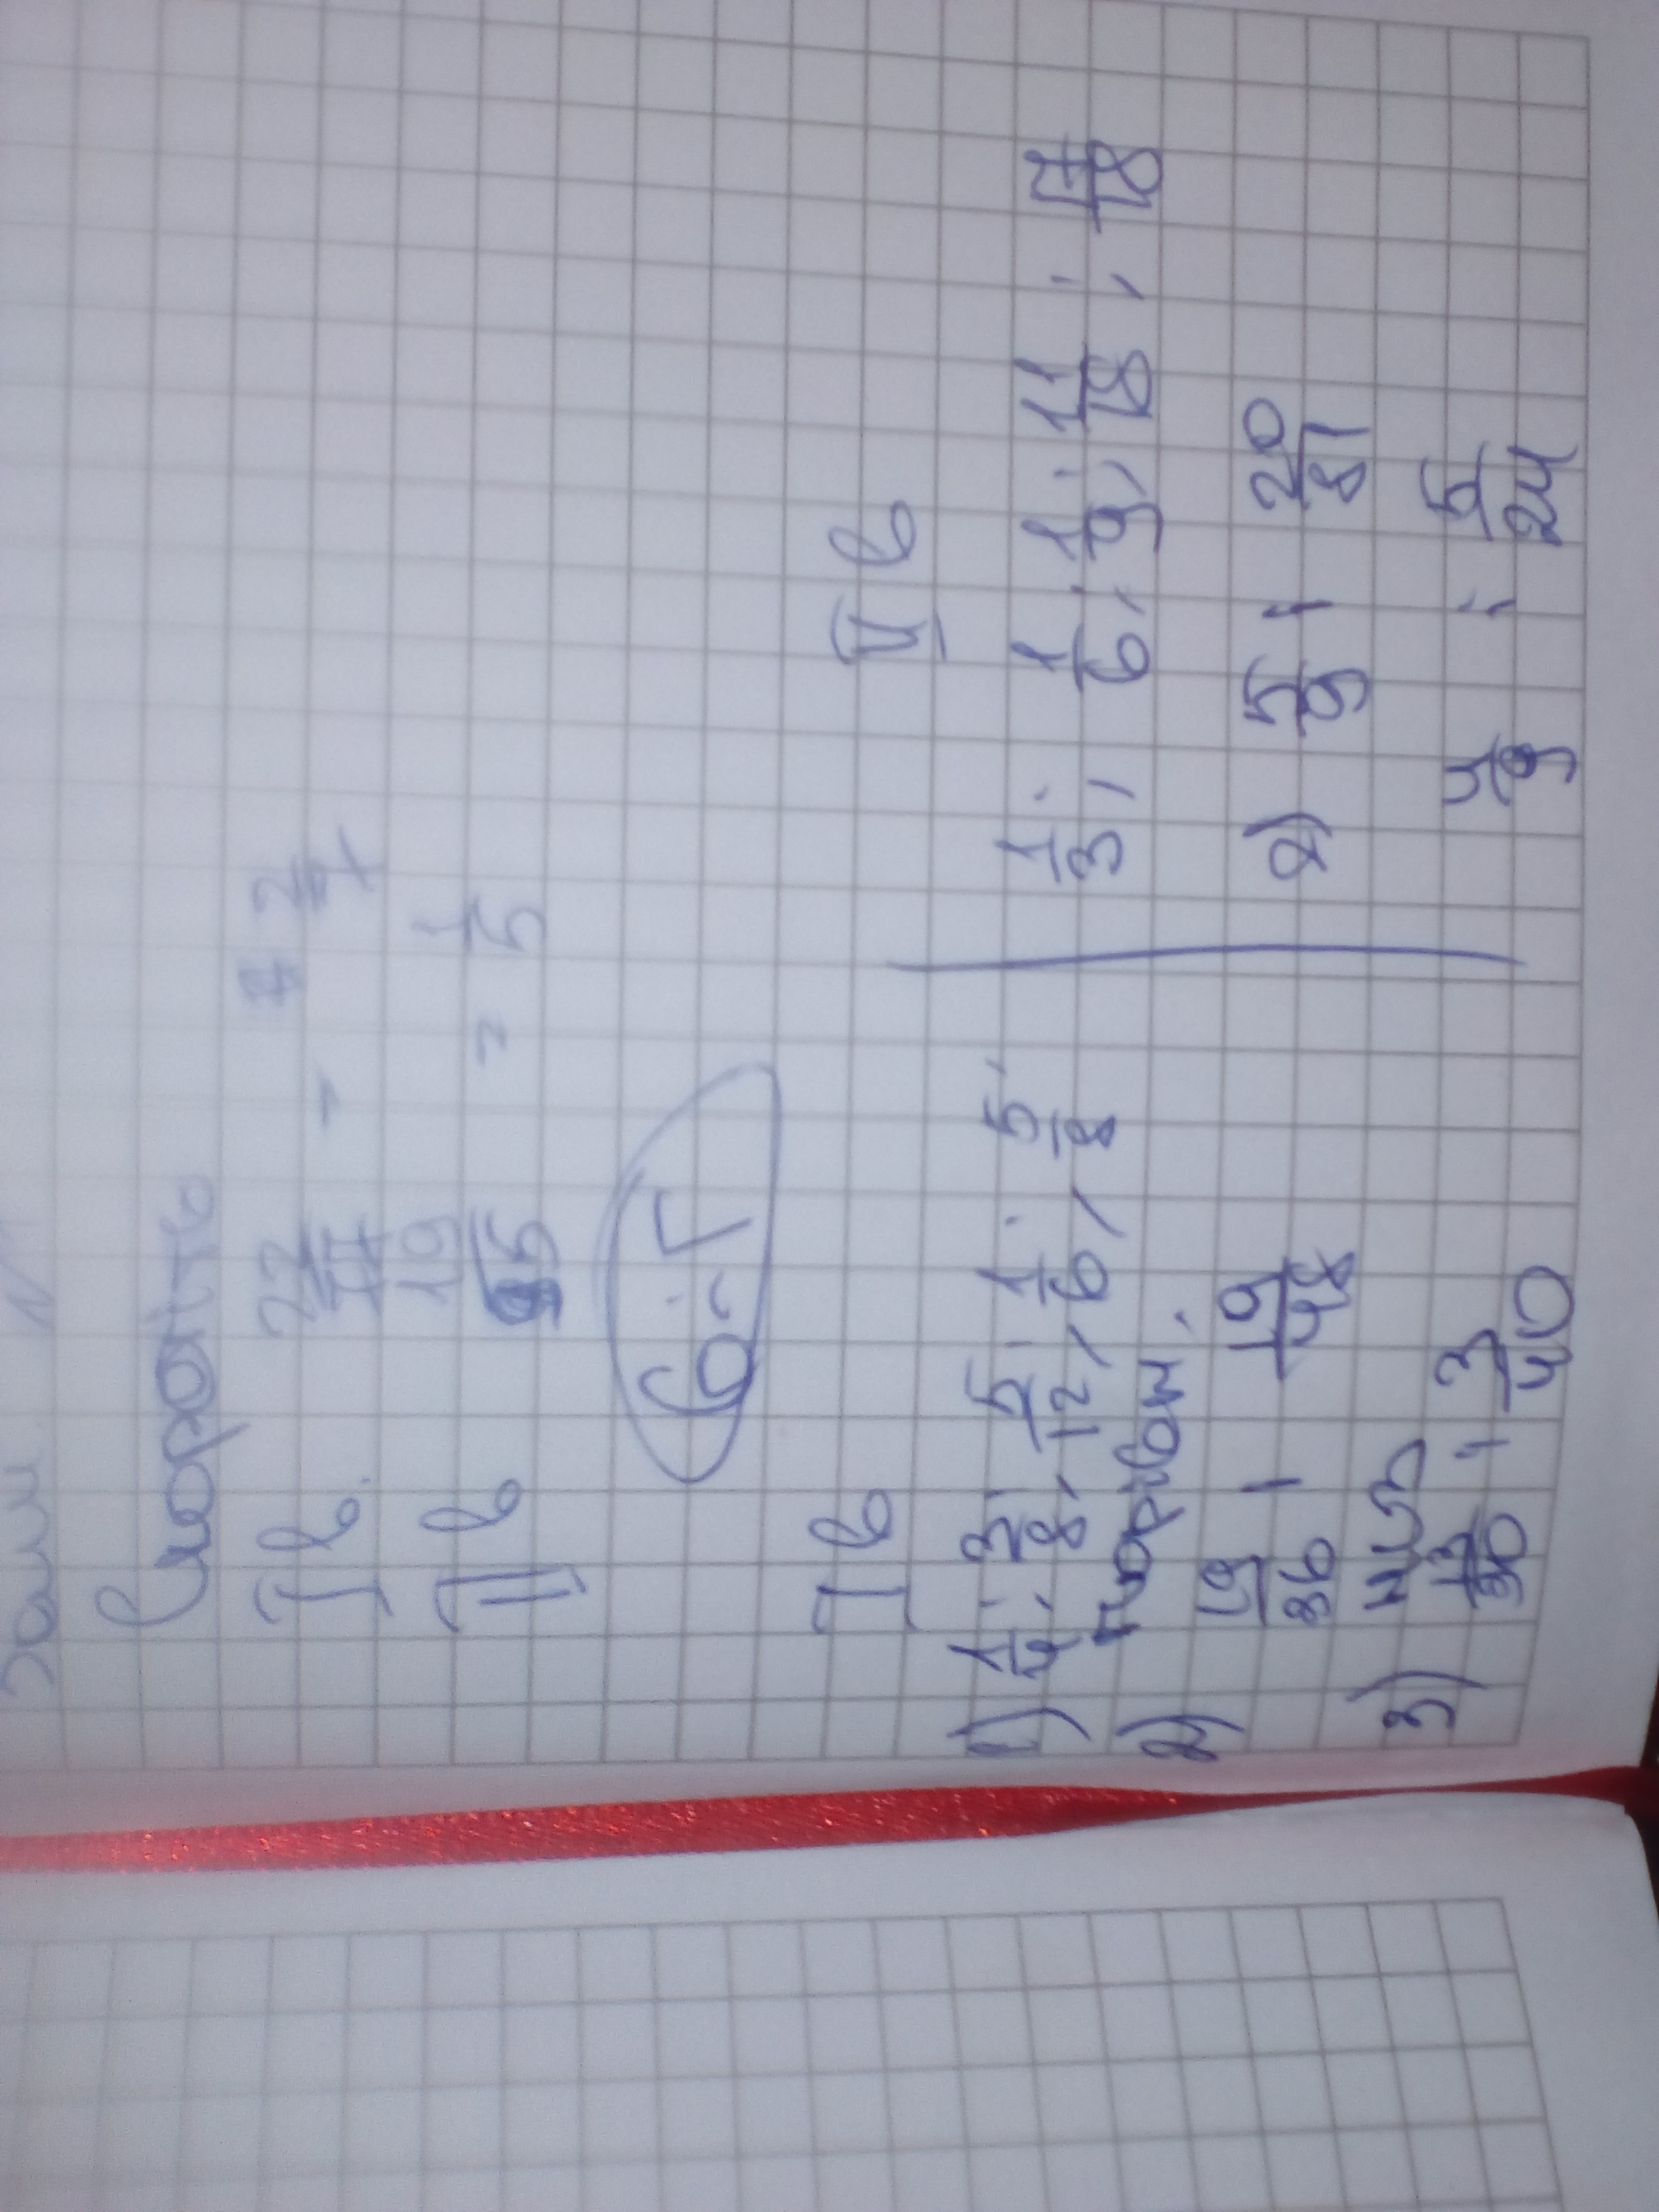 Скоротить
I в. 22/77 = 2/7
II в 19/95 = 1/5
6-Г
I в
1) 1/4, 3/8, 5/12, 1/6, 5/8
2) порівн.
19/36 і 19/48
3) НСЗ
13/30 і 3/40
II в
1/3, 1/6, 1/9, 11/18, 17/18
2) 5/9 і 20/81
4/9 і 5/24